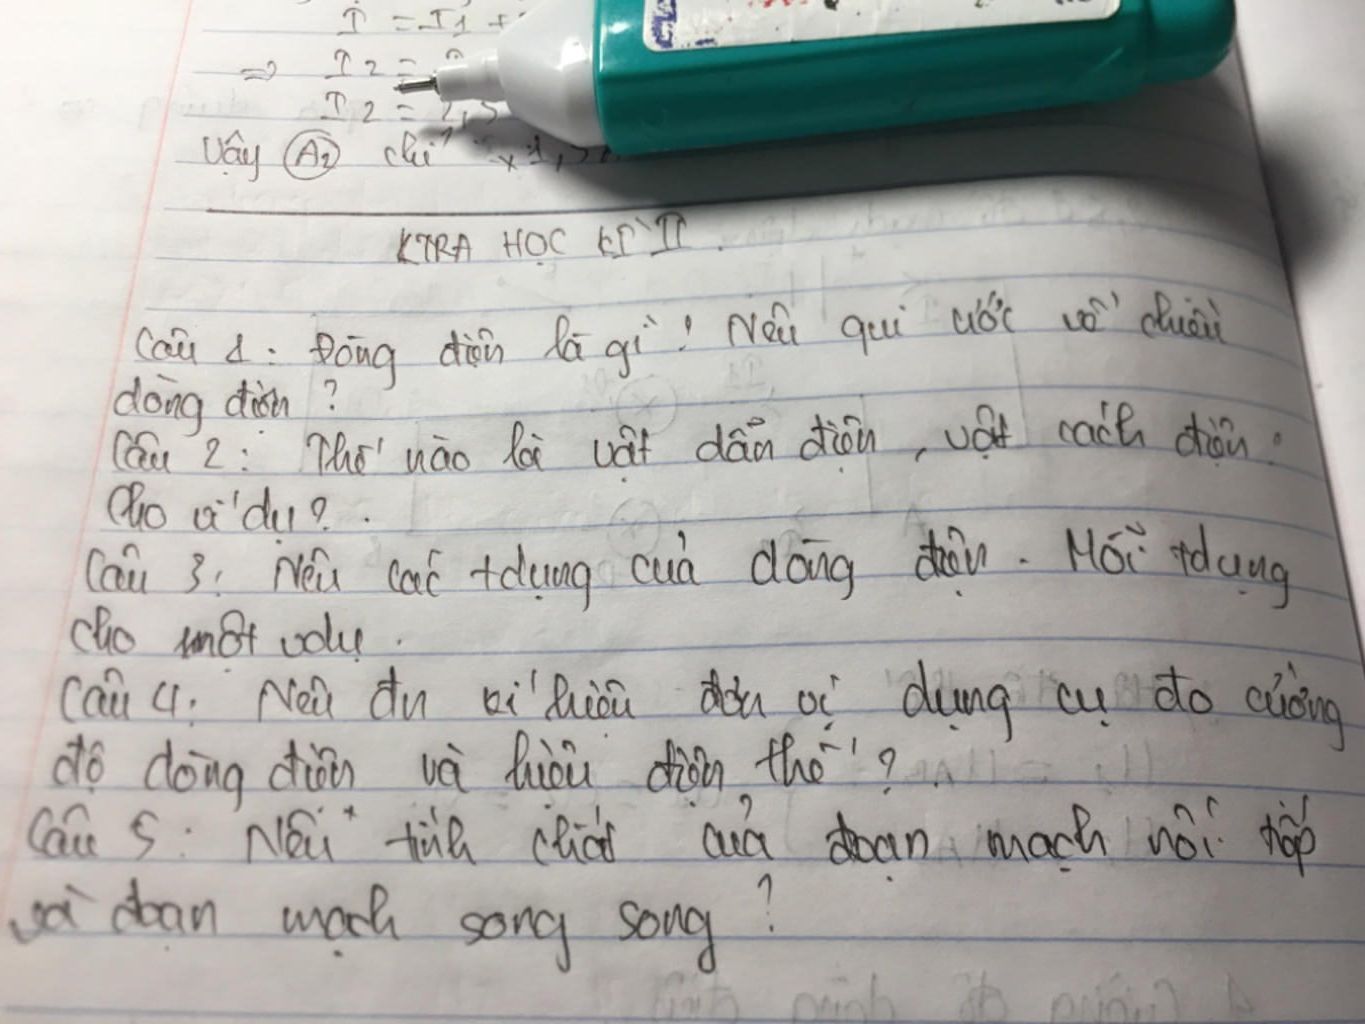 I = I1 +
=> I2 =
I2 = 2,5
Vậy (A2) chỉ 1,5
KTRA HỌC KÌ II.
Câu 1: Dòng điện là gì? Nêu qui ước về chiều
dòng điện?
Câu 2: Thế nào là vật dẫn điện, vật cách điện.
Cho ví dụ?.
Câu 3: Nêu các tdụng của dòng điện. Mỗi tdụng
cho một vdụ.
Câu 4: Nêu đn kí hiệu đơn vị dụng cụ đo cường
độ dòng điện và hiệu điện thế?
Câu 5: Nêu tính chất của đoạn mạch nối tiếp
và đoạn mạch song song?